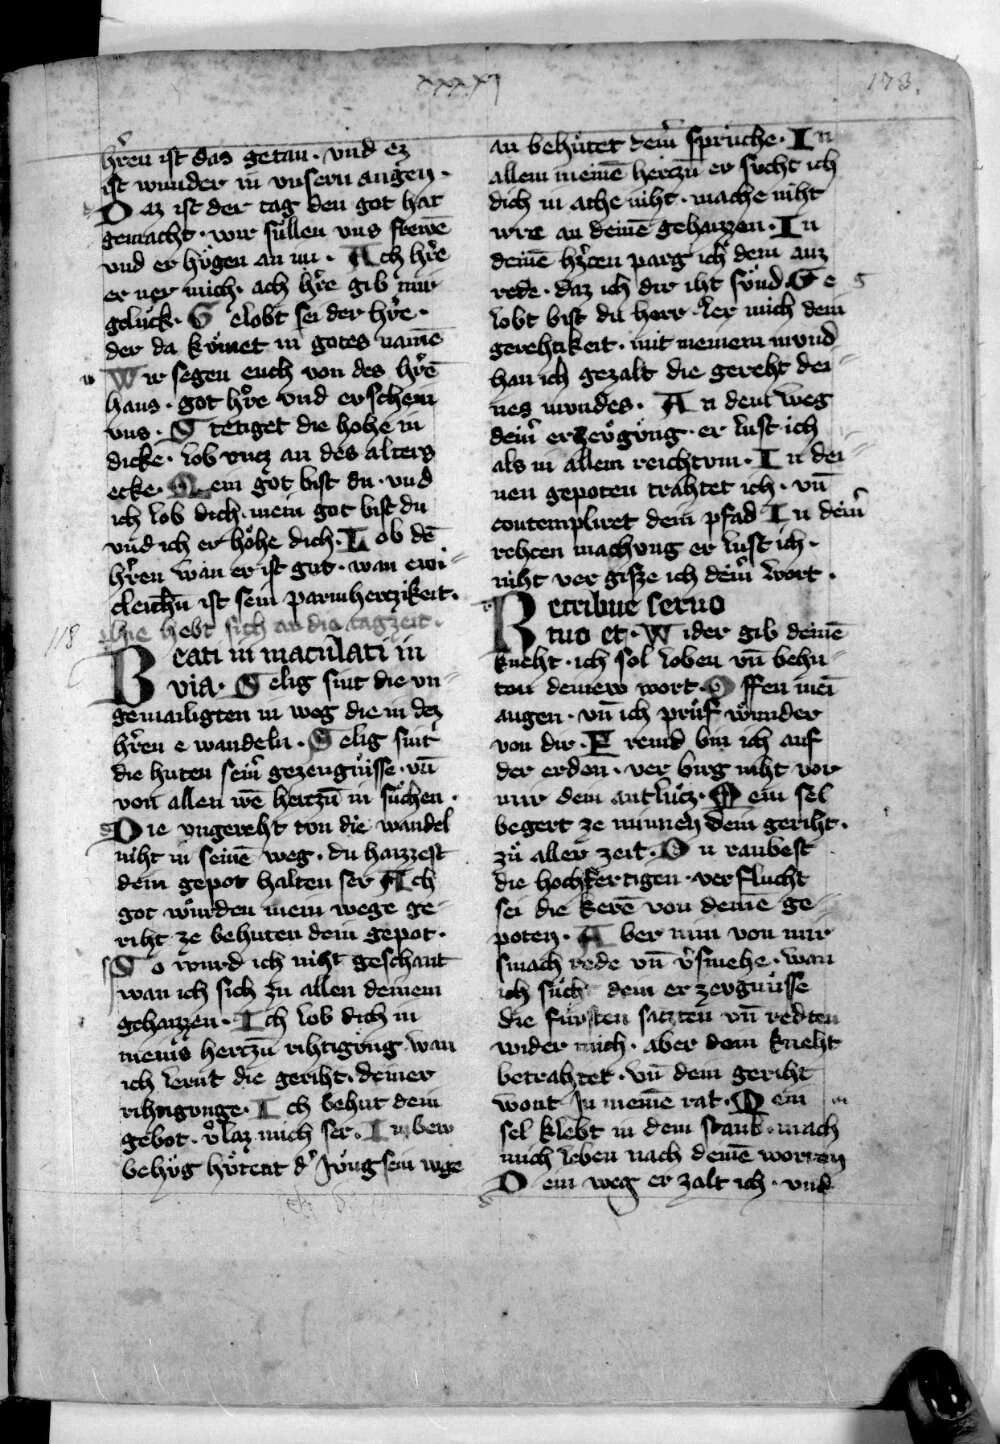 xxxxj
173.
hr̃en ist das getan · vnd ez
ist wunder in vnsern augen ·
Daz ist der tag den got hat
gemacht · wir sůllen vns frewē
vnd er högen an im · Ach hr̃e
er ner mich · ach hr̃e gib mir
gelück · Gelobt sei der hr̃e ·
der da kůmet in gotes namē
Wir segen euch von des hr̃ē
haus · got hr̃e vnd erschein
vns · Stetiget die hohe in
dicke · lob vncz an des alters
ecke · Mein got bist du · vnd
ich lob dich · mein got bist du
vnd ich er höhe dich · Lob dē
hr̃en wan er ist gut · wan ewi-
cleichñ ist sein parmherczikeit ·
hie hebt sich an die tagzeit ·
118
Beati in maculati in
via · Selig sint die vn
gemailigten in weg die in dez
hr̃en e wandeln · Selig sint
die huten sein̄ gezeugnüsse · vn̄
von allen wē hertzn̄ in sůchen ·
Die vngereht ton die wandel
niht in seinē weg · du haizzest
dein gepot halten ser Ach
got würden mein wege ge-
riht ze behuten dein gepot ·
So wurd ich niht geschant
wan ich sich zu allen deinem
gehaizzen · Ich lob dich in
meins hertzn̄ rihtigüng wan
ich lernt die geriht · deiner
rihtigunge · Ich behut dein
gebot · v̾laz mich ser · In bew
behüg hütent d̾ Jüng sein wge
an behütet dein̄ sprüche · In
allem meinē hertzn̄ er sucht ich
dich in athe niht · mache niht
irre an deinē gehaizzen · In
deinē hr̃cen parg ich dein auz
rede · daz ich dir iht sünd · Ge
lobt bist du herr · ler mich dein
gerehtikeit · mit meinem mund
han ich gezalt die gereht dei-
nes mundes · An dem weg
dein̄ erzeügüng · er lust ich
als in allem reichtum · In dei-
nen gepoten trahtet ich · vn̄
contempliret dein pfad In dein̄
rehten machung er lust ich ·
niht ver gisze ich dein̄ wort ·
Retribue seruo
tuo et · Wider gib deinē
kneht · ich sol loben vn̄ behu-
ten deinew wort · Offen mei
augen · vn̄ ich průf wunder
von dir · Fremd bin ich auf
der erden̄ · ver birg niht vor
mir dein antlütz · Mein sel
begert ze minnen dein geriht ·
zů aller zeit · Du raubest
die hochfertigen · verflucht
sei die kerē von deinē ge-
poten · Aber nim von mir
smach rede vn̄ v̾smehe · wan
ich sůch dein er zeugnüsse
die fürsten saczten vn̄ redten
wider mich · aber dein kneht
betrahtet · vn̄ dein geriht
wont in meinē rat · Mein
sel klebt in dem staub · mach
mich leben nach deinē worten
Dein weg er zalt ich · vnd